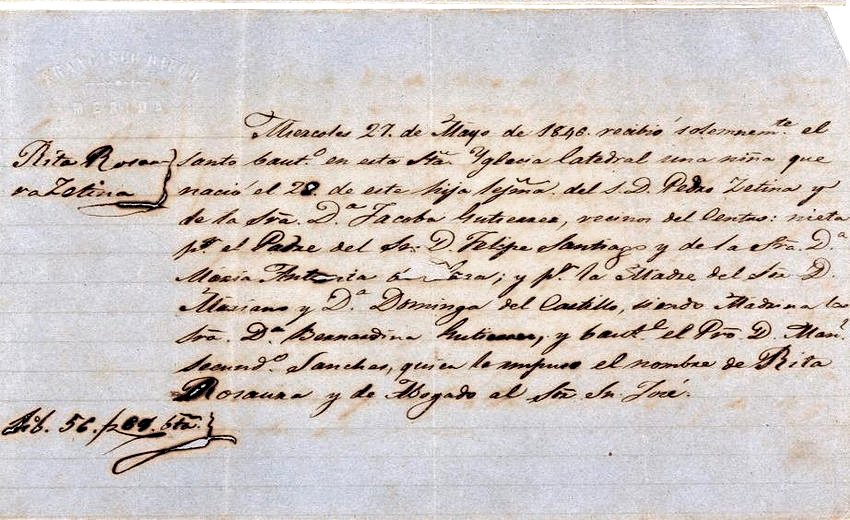 MERIDA
Miercoles 27. de Mayo de 1846. recibió solemnem.te el
Rita Rosau-
santo baut.o en esta Sta. Yglecia Catedral una niña que
ra Zetina
nació el 22 de este hija lejma. del S. D. Pedro Zetina y
de la Sra. D.a Jacoba Gutierrez, vecinos del Centro: nieta
pr. el Padre del Sor. D. Felipe Santiago y de la Sra. D.a
Maria Antonia; y pr. la Madre del Sor. D.
Mariano y D.a Dominga del Castillo, siendo Madrina la
Sra. D.a Bernardina Gutierrez, y baut.o el Pro. D. Man.l
secund.o Sanches, quien le impuso el nombre de Rita
Rosaura y de Abogado al Sor. Sn. José.
Lib. 56. bta.